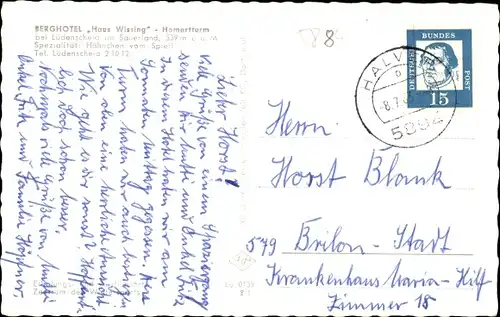 BERGHOTEL „Haus Wissing" - Homertturm
bei Lüdenscheid im Sauerland, 539 m ü. M.
Spezialität: Hähnchen vom Spieß
Tel. Lüdenscheid 21012
Lieber Horst!
Viele Grüße von einem Spaziergang
senden Dir Mutti und Onkel Fritz
In diesem Hotel haben wir am
Sonntag Mittag gegessen. Vom
Turm haben wir auch
Von oben eine herrliche Aussicht.
Wie geht es Dir sonst? Hoffent-
lich doch schon besser.
Nochmals viele Grüße von Mutti
Onkel Fritz und Familie
88
HALVER
8.7
5892
DEUTSCHE
BUNDES
POST
15
Herrn
Horst Blank
579 Brilon-Stadt
Krankenhaus Maria-Hilf
Zimmer 18